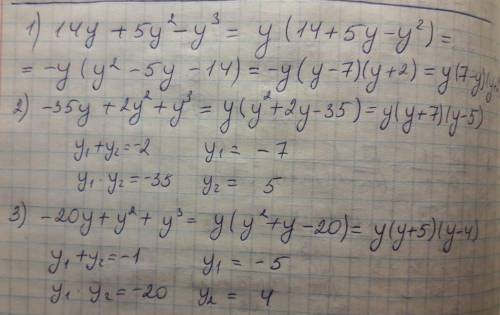 1) 14y + 5y² - y³ = y (14 + 5y - y²) =
= -y (y² - 5y - 14) = -y (y - 7)(y + 2) = y(7-y)(y+
2) -35y + 2y² + y³ = y(y² + 2y - 35) = y(y+7)(y-5)
y₁ + y₂ = -2 y₁ = -7
y₁ · y₂ = -35 y₂ = 5
3) -20y + y² + y³ = y(y² + y - 20) = y(y+5)(y-4)
y₁ + y₂ = -1 y₁ = -5
y₁ · y₂ = -20 y₂ = 4